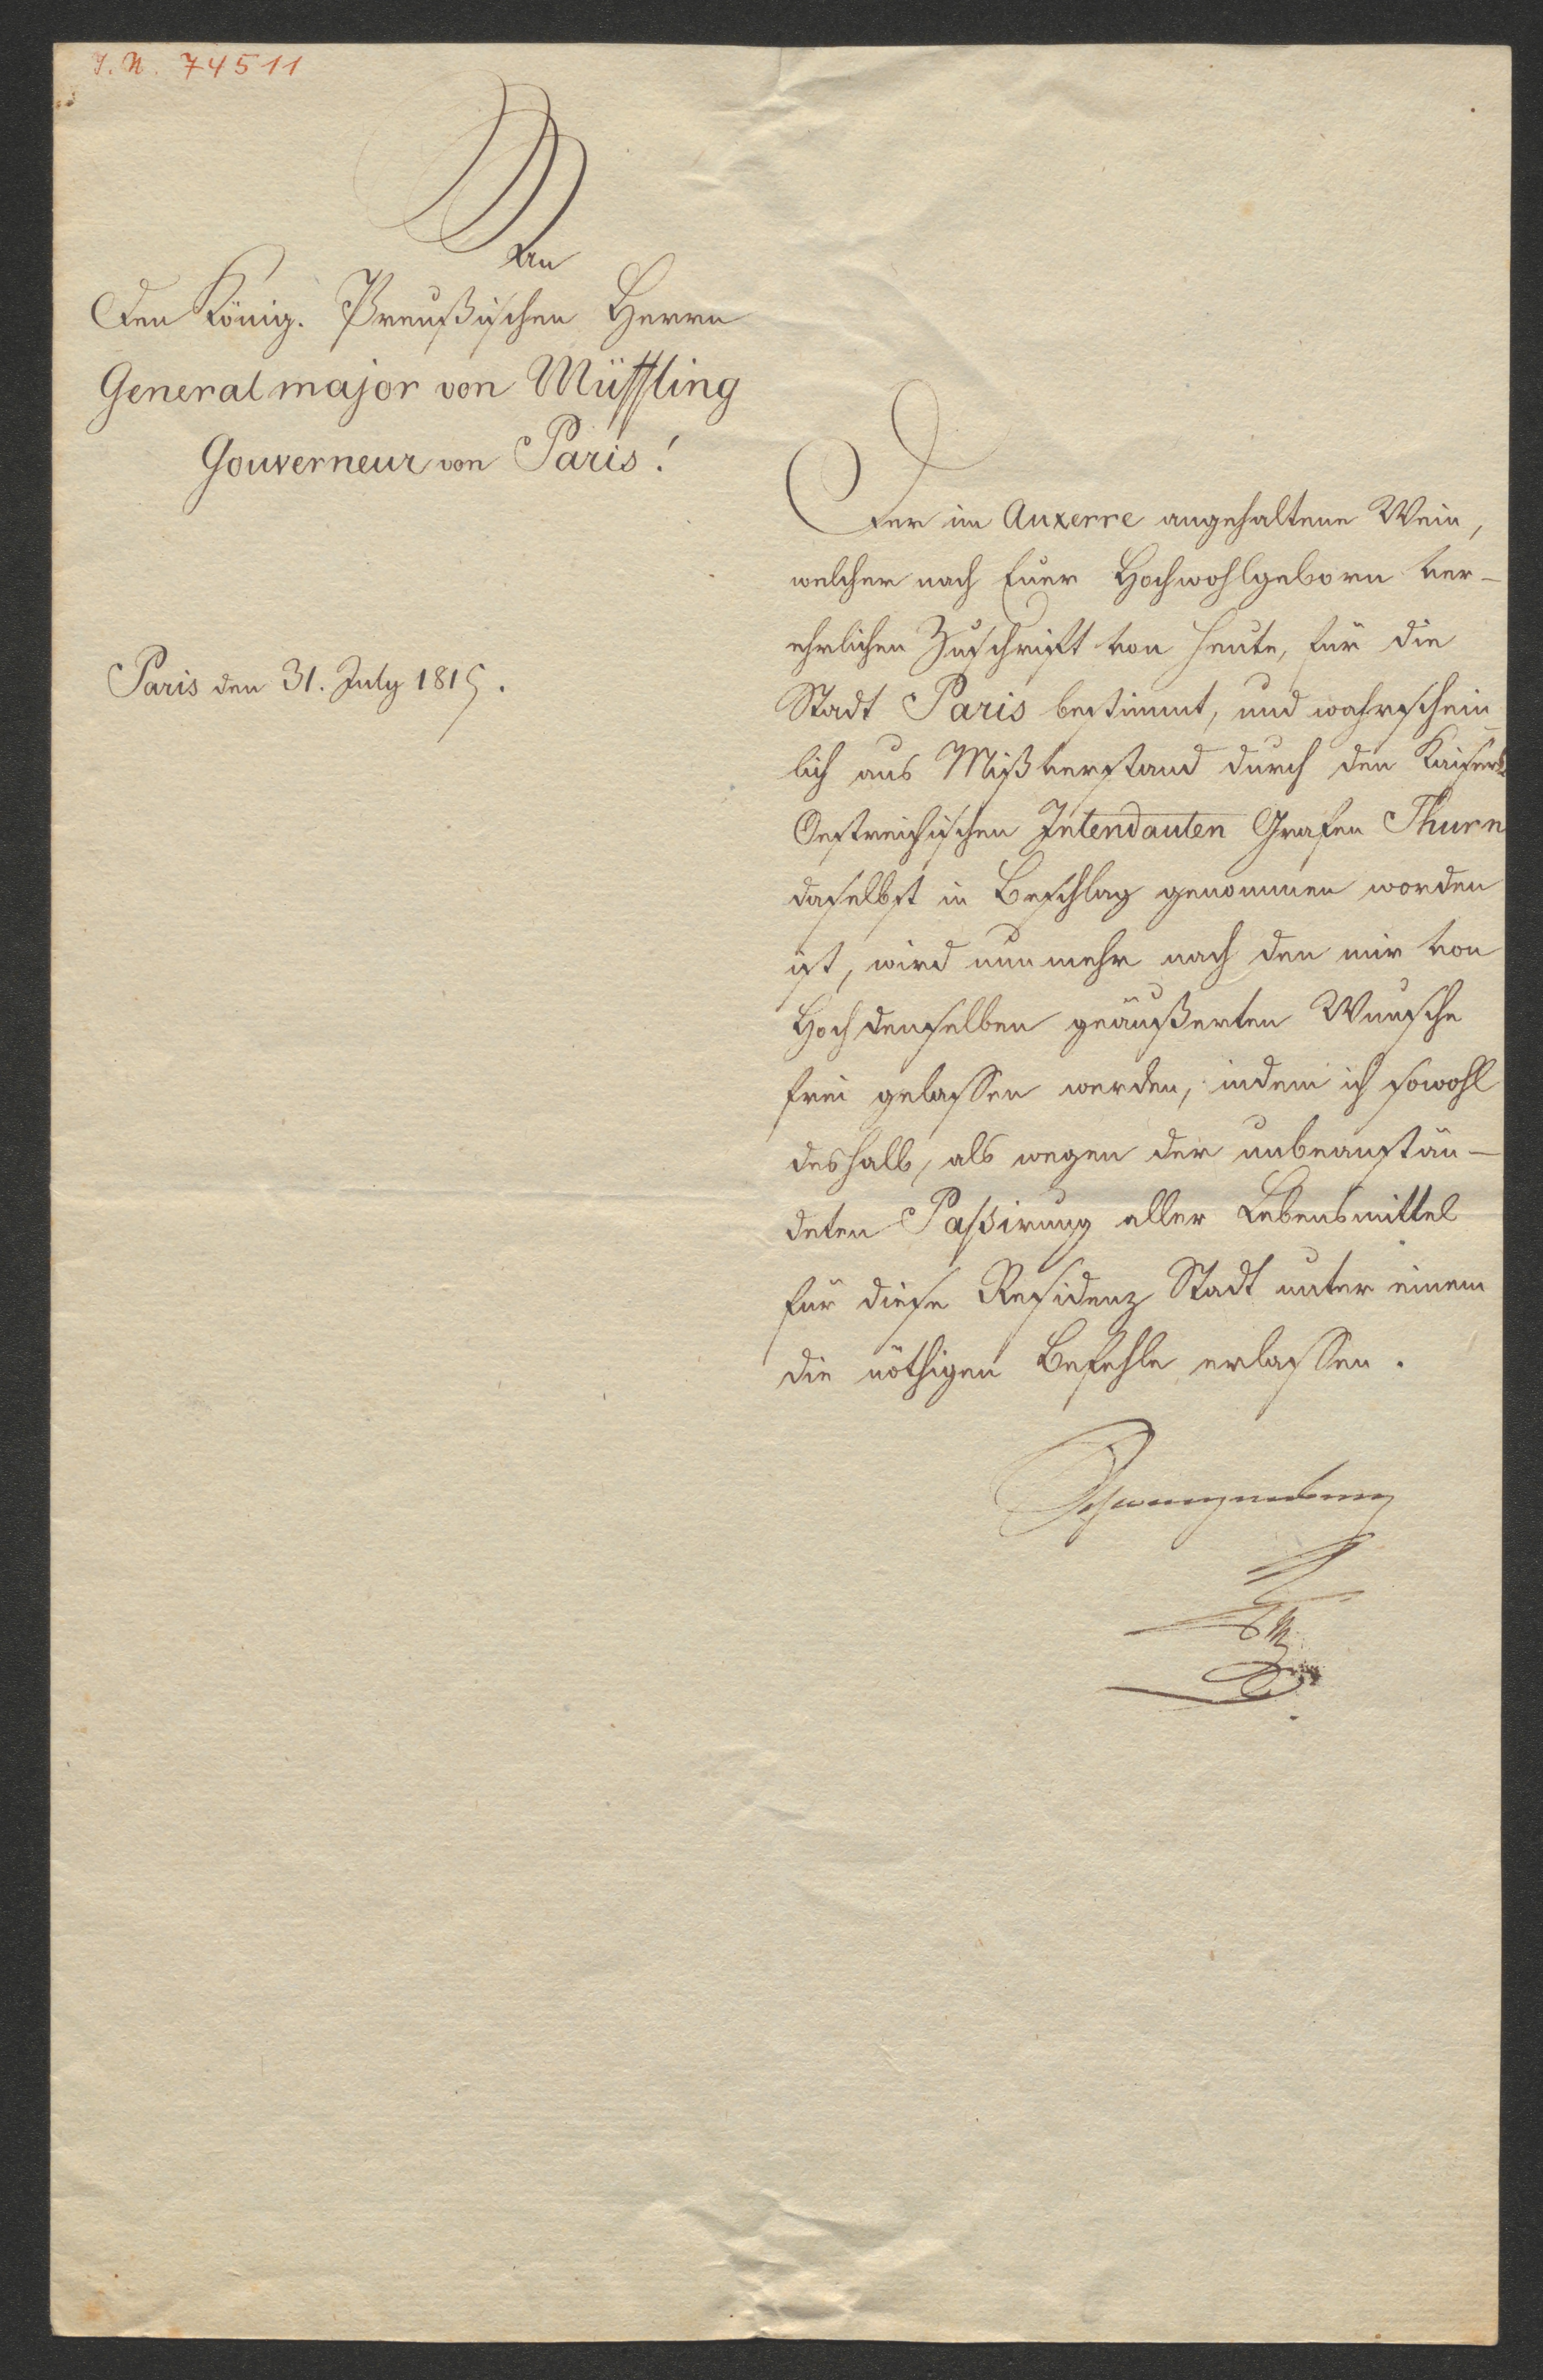 I. N. 74511
An
Den König. Preußischen Herrn
Generalmajor von Müffling
Gouverneur von Paris!
Paris den 31. July 1815.
Der in Auxerre angehaltene Wein,
welcher nach Euer Hochwohlgeborn ver-
ehrlichen Zuschrift von heute, für die
Stadt Paris bestimmt, und wahrschein-
lich aus Mißverstand durch den Kaiserl.
Oestreichischen Intendanten Grafen Thurn
daselbst in Beschlag genommen worden
ist, wird nunmehr nach den mir von
Hochdenselben geäußerten Wunsche
frei gelassen werden, indem ich sowohl
deshalb, als wegen der unbeanstän-
deten Passirung aller Lebensmittel
für diese Residenz Stadt unter einem
die nöthigen Befehle erlassen.
Schwarzenberg